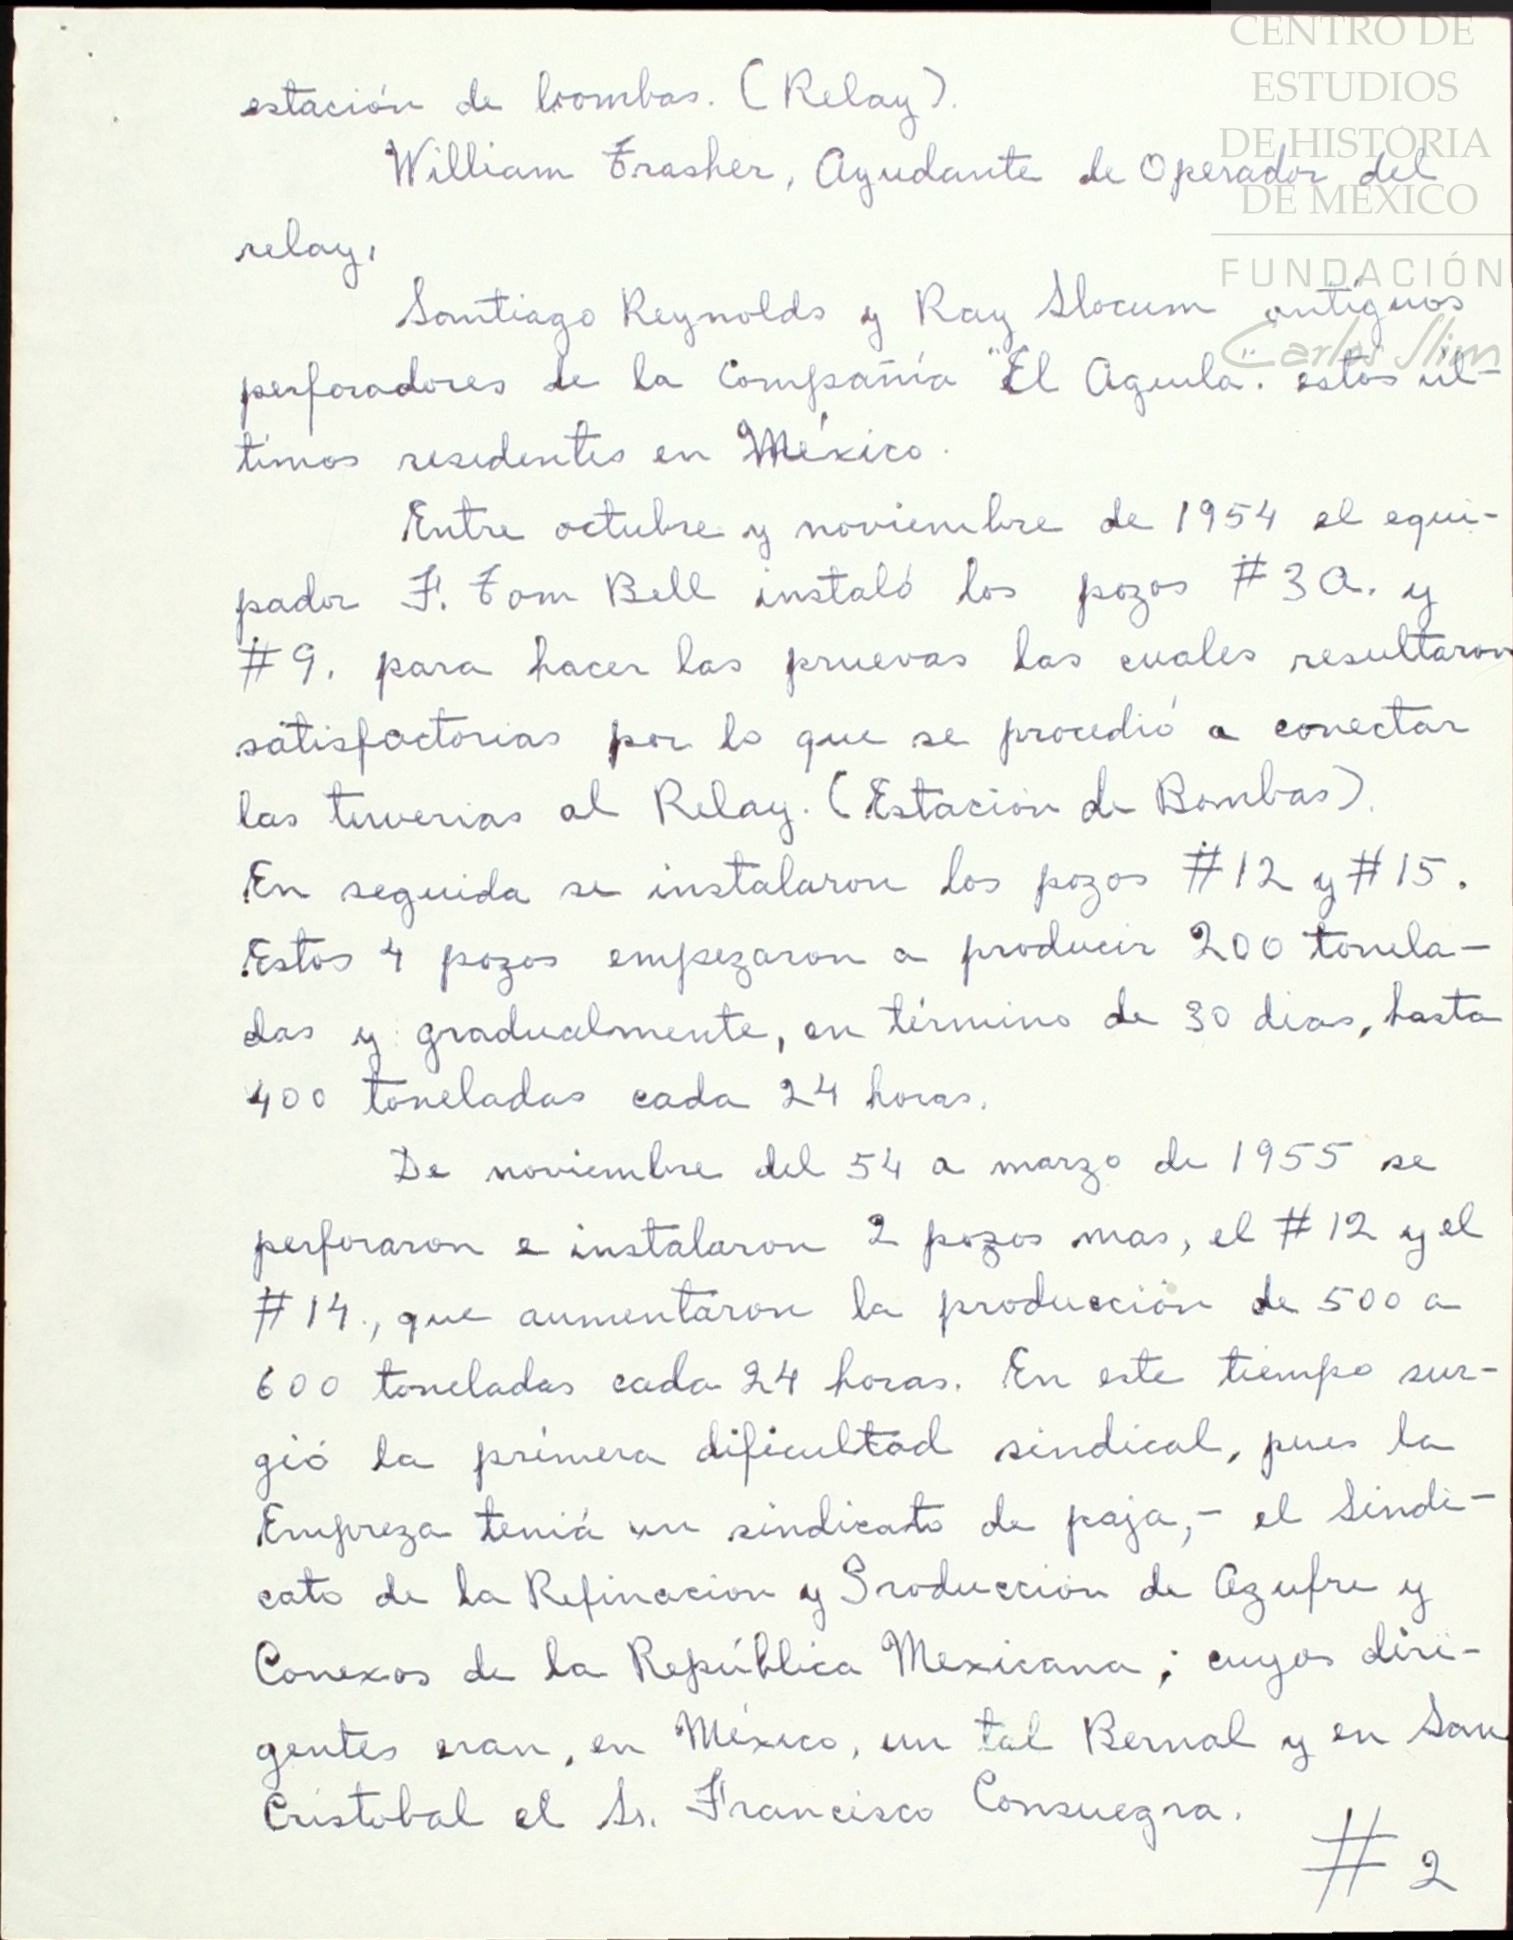 CENTRO DE
ESTUDIOS
DE HISTORIA
DE MÉXICO
FUNDACIÓN
Carlos Slim
estación de bombas. (Relay).
William Frasher, Ayudante de Operador del
relay,
Santiago Reynolds y Ray Slocum antíguos
perforadores de la Compañía "El Aguila. estos úl-
timos residentes en México.
Entre octubre y noviembre de 1954 el equi-
pador F. Tom Bell instaló los pozos #3A. y
#9. para hacer las pruevas las cuales resultaron
satisfactorias por lo que se procedió a conectar
las tuverias al Relay. (Estación de Bombas).
En seguida se instalaron los pozos #12 y #15.
Estos 4 pozos empezaron a producir 200 tonela-
das y gradualmente, en término de 30 dias, hasta
400 toneladas cada 24 horas.
De noviembre del 54 a marzo de 1955 se
perforaron e instalaron 2 pozos mas, el #12 y el
#14., que aumentaron la producción de 500 a
600 toneladas cada 24 horas. En este tiempo sur-
gió la primera dificultad sindical, pues la
Empreza teniá un sindicato de paja,- el Sindi-
cato de la Refinación y Producción de Azufre y
Conexos de la República Mexicana; cuyos diri-
gentes eran, en México, un tal Bernal y en San
Cristobal el Sr. Francisco Consuegra.
#2